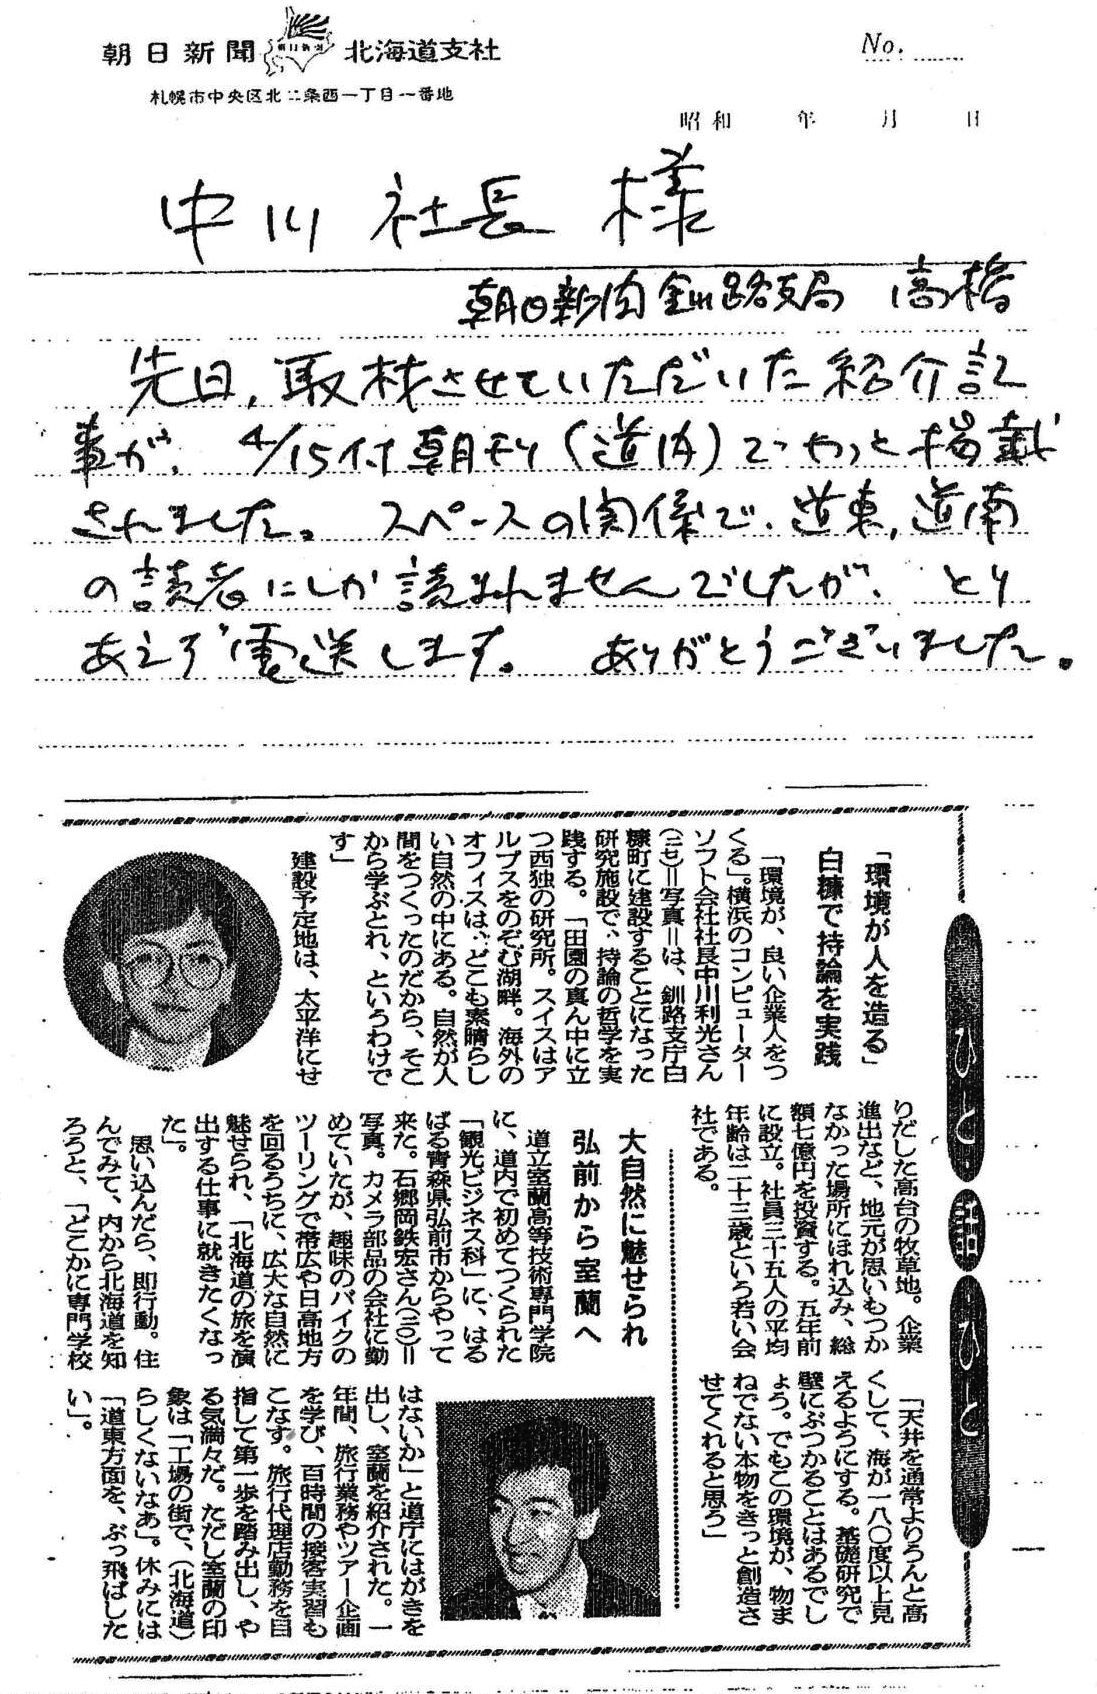 朝日新聞 朝日新聞 北海道支社
No.
札幌市中央区北二条西一丁目一番地
昭和 年 月 日
中川 社長 様
朝日新聞釧路支局 高橋
先日、取材させていただいた紹介記
事が、4/15付朝刊(道内)でやっと掲載
されました。スペースの関係で、道東、道南
の読者にしか読まれませんでしたが、とり
あえず電送します。ありがとうございました。
ひと・ひと
「環境が人を造る」
白糠で持論を実践
「環境が、良い企業人をつ
くる」。横浜のコンピューター
ソフト会社社長中川利光さん
=写真=は、釧路支庁白
糠町に建設することになった
研究施設で、持論の哲学を実
践する。「田園の真ん中に立
つ西独の研究所。スイスはア
ルプスをのぞむ湖畔。海外の
オフィスは、どこも素晴らし
い自然の中にある。自然が人
間をつくったのだから、そこ
から学ぶとれ、というわけで
す」
建設予定地は、太平洋にせ
りだした高台の牧草地。企業
進出など、地元が思いもつか
なかった場所にほれ込み、総
額七億円を投資する。五年前
に設立。社員三十五人の平均
年齢は二十三歳という若い会
社である。
「天井を通常よりうんと高
くして、海が一八〇度以上見
えるようにする。基礎研究で
壁にぶつかることはあるでし
ょう。でもこの環境が、物ま
ねでない本物をきっと創造さ
せてくれると思う」
大自然に魅せられ
弘前から室蘭へ
道立室蘭高等技術専門学院
に、道内で初めてつくられた
「観光ビジネス科」に、はる
ばる青森県弘前市からやって
来た。石郷岡鉄宏さん(二〇)=
写真。カメラ部品の会社に勤
めていたが、趣味のバイクの
ツーリングで帯広や日高地方
を回るうちに、広大な自然に
魅せられ、「北海道の旅を演
出する仕事に就きたくなっ
た」。
思い込んだら、即行動。住
んでみて、内から北海道を知
ろうと、「どこかに専門学校
はないか」と道庁にはがきを
出し、室蘭を紹介された。一
年間、旅行業務やツアー企画
を学び、百時間の接客実習も
こなす。旅行代理店勤務を目
指して第一歩を踏み出し、や
る気満々だ。ただし室蘭の印
象は「工場の街で、(北海道)
らしくないなあ」。休みには
「道東方面を、ぶっ飛ばした
い」。